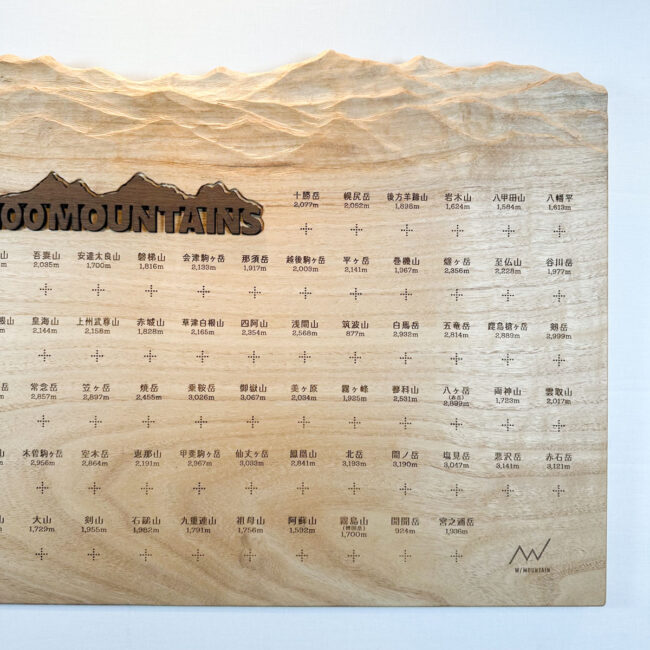 十勝岳 幌尻岳 後方羊蹄山 岩木山 八甲田山 八幡平
2,077m 2,052m 1,898m 1,624m 1,584m 1,613m
OOMOUNTAINS
山 吾妻山 安達太良山 磐梯山 会津駒ヶ岳 那須岳 越後駒ヶ岳 平ヶ岳 巻機山 燧ヶ岳 至仏山 谷川岳
m 2,035m 1,700m 1,816m 2,133m 1,917m 2,003m 2,141m 1,967m 2,356m 2,228m 1,977m
根山 皇海山 上州武尊山 赤城山 草津白根山 四阿山 浅間山 筑波山 白馬岳 五竜岳 鹿島槍ヶ岳 剱岳
m 2,144m 2,158m 1,828m 2,165m 2,354m 2,568m 877m 2,932m 2,814m 2,889m 2,999m
岳 常念岳 笠ヶ岳 焼岳 乗鞍岳 御嶽山 美ヶ原 霧ヶ峰 蓼科山 八ヶ岳 両神山 雲取山
(赤岳)
m 2,857m 2,897m 2,455m 3,026m 3,067m 2,034m 1,925m 2,531m 2,899m 1,723m 2,017m
山 木曽駒ヶ岳 空木岳 恵那山 甲斐駒ヶ岳 仙丈ヶ岳 鳳凰山 北岳 間ノ岳 塩見岳 悪沢岳 赤石岳
m 2,956m 2,864m 2,191m 2,967m 3,033m 2,841m 3,193m 3,190m 3,047m 3,141m 3,121m
山 大山 剣山 石鎚山 九重連山 祖母山 阿蘇山 霧島山 開聞岳 宮之浦岳
(韓国岳)
m 1,729m 1,955m 1,982m 1,791m 1,756m 1,592m 1,700m 924m 1,936m
W/MOUNTAIN